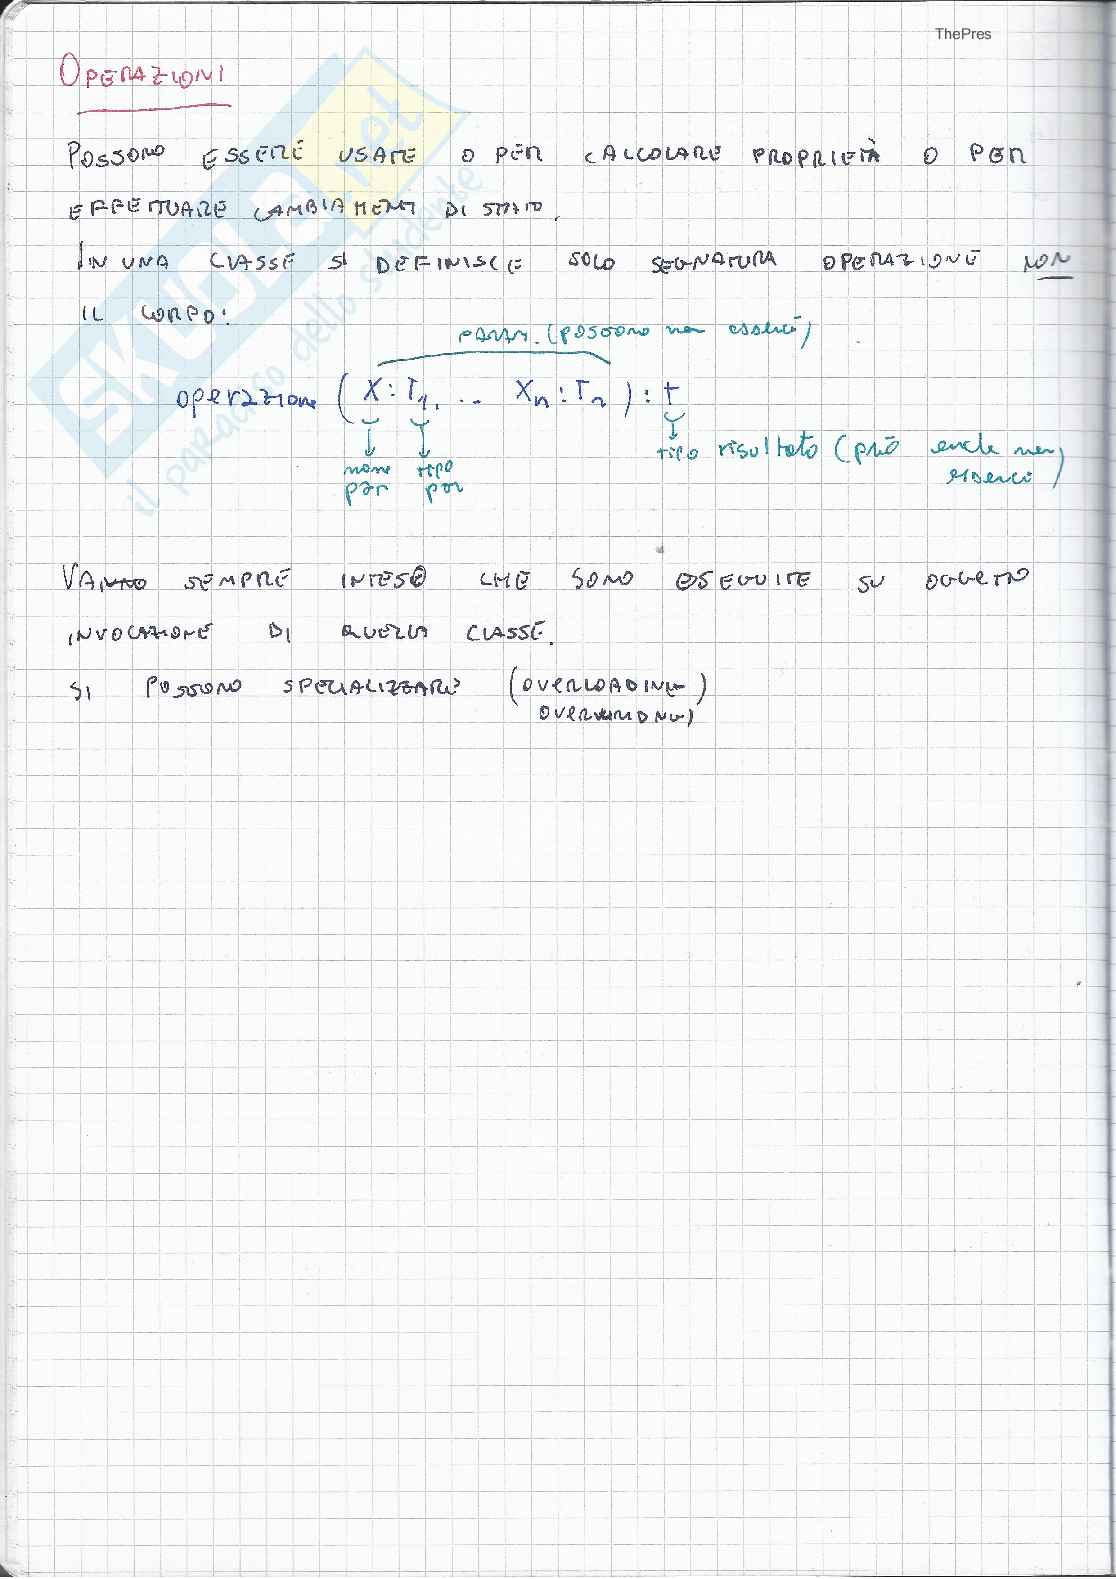 ThePres
OPERAZIONI
POSSONO ESSERE USATE O PER CALCOLARE PROPRIETÀ O PER
EFFETTUARE CAMBIAMENTI DI STATO.
IN UNA CLASSE SI DEFINISCE SOLO SEGNATURA OPERAZIONE NON
IL CORPO:
PARAM. (POSSONO non esserci)
operazione (X:T1, ... Xn:Tn) : t
nome tipo
par par
tipo risultato (può anche non
esserci)
VANNO SEMPRE INTESE CHE SONO ESEGUITE SU OGGETTO
INVOCAZIONE DI QUELLA CLASSE.
SI POSSONO SPECIALIZZARE (OVERLOADING)
OVERRIDING)
SKUOLA.net
il paradiso dello studente